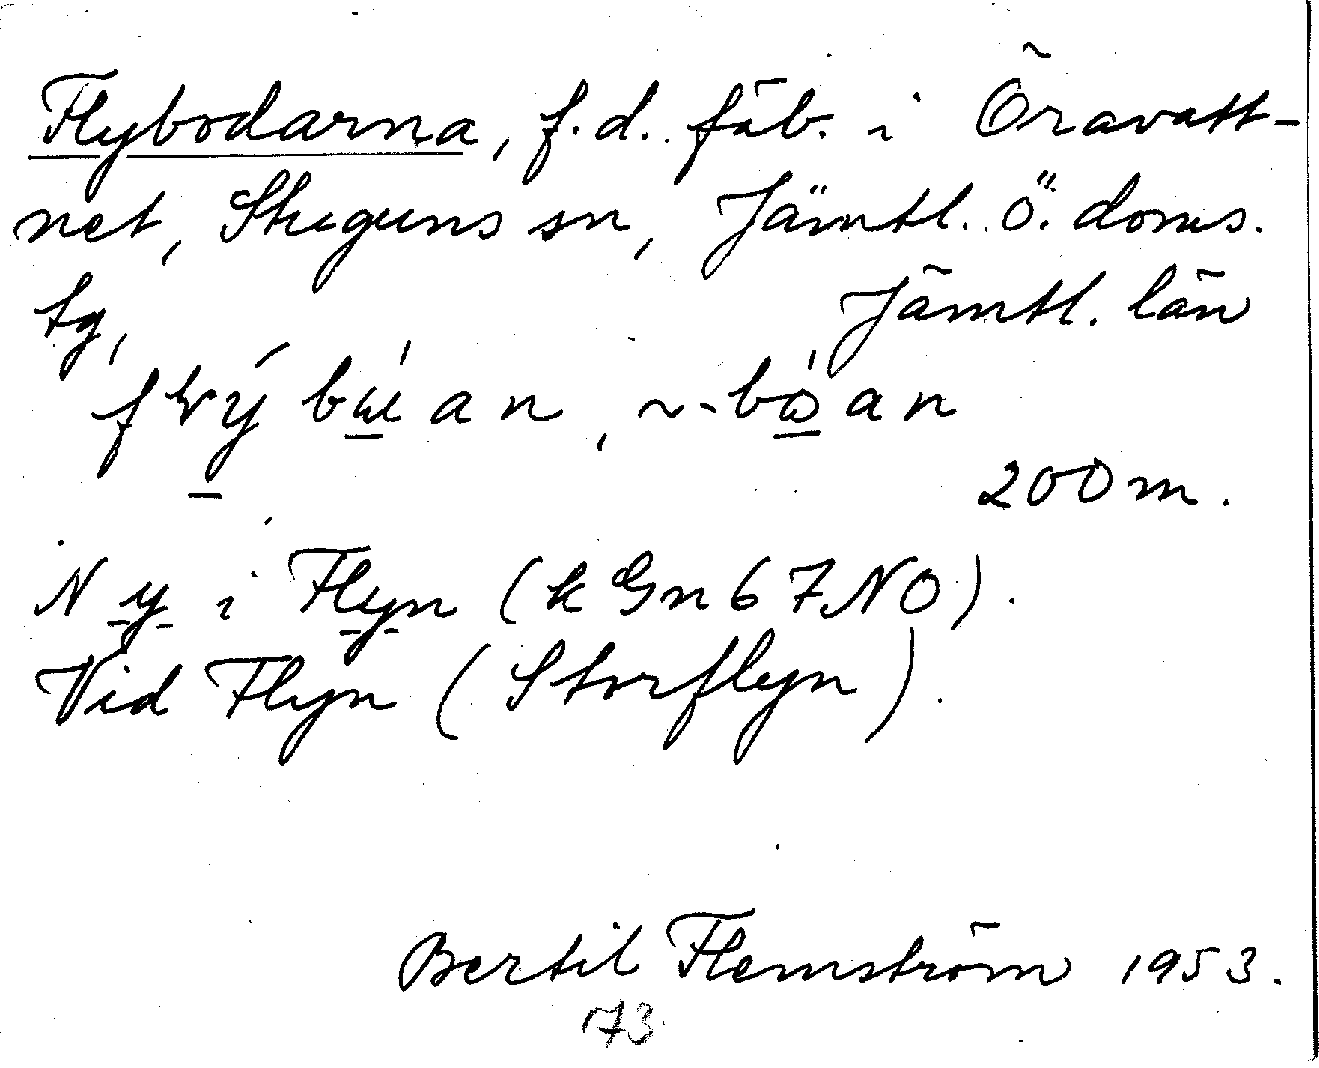 Flybodarna, f.d. fäb. i Öravatt-
net, Stuguns sn, Jämtl. ö. doms.
tg, Jämtl. län
200 m.
Ny i Flyn (k Gn 67 NO).
Vid Flyn (Storflyn).
Bertil Flemström 1953.
73